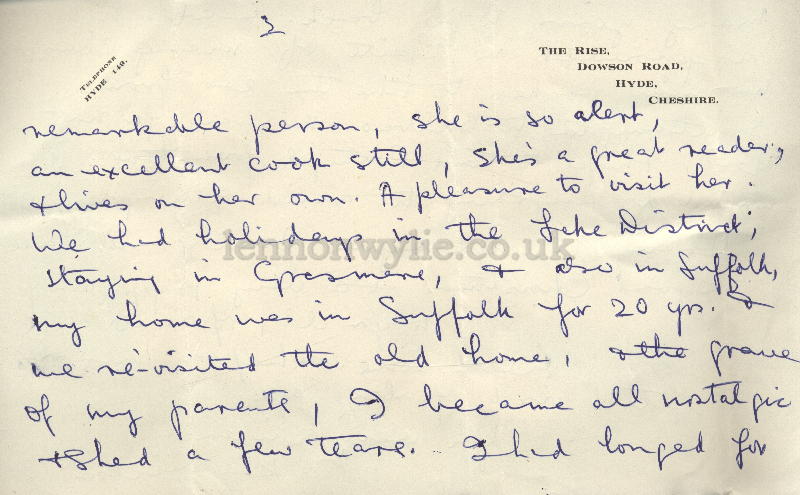 2
TELEPHONE
HYDE 149.
THE RISE,
DOWSON ROAD,
HYDE,
CHESHIRE.
remarkable person, she is so alert,
an excellent cook still, she's a great reader,
& lives on her own. A pleasure to visit her.
We had holidays in the Lake District;
lennonwylie.co.uk
staying in Grasmere, & also in Suffolk,
my home was in Suffolk for 20 yrs. &
we re-visited the old home, & the grave
of my parents, I became all nostalgic
& shed a few tears. I had longed for